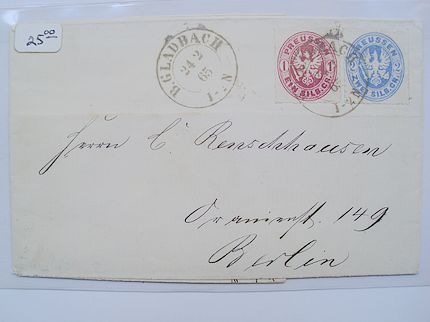 25.00
B. GLADBACH
24 2
65
1-N
PREUSSEN
1 1
EIN SILB. GR.
PREUSSEN
2 2
ZWEI SILB. GR.
Herrn C. Renschhausen
Oranienst. 149
Berlin